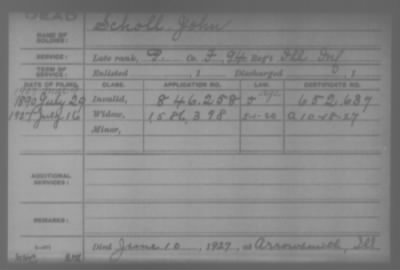 DEAD
NAME OF SOLDIER: Scholl, John
SERVICE: Late rank, P. Co. F, 94 Reg't Ill Inf
TERM OF SERVICE: Enlisted , 1 Discharged , 1
DATE OF FILING. CLASS. APPLICATION NO. LAW. CERTIFICATE NO.
1890 July 29 Invalid, 846.258 652.637
1927 July 16 Widow, 1586,398 5-1-20 A10-18-27
Minor,
ADDITIONAL SERVICES:
REMARKS:
Died June 10, 1927, at Arrowsmith, Ill